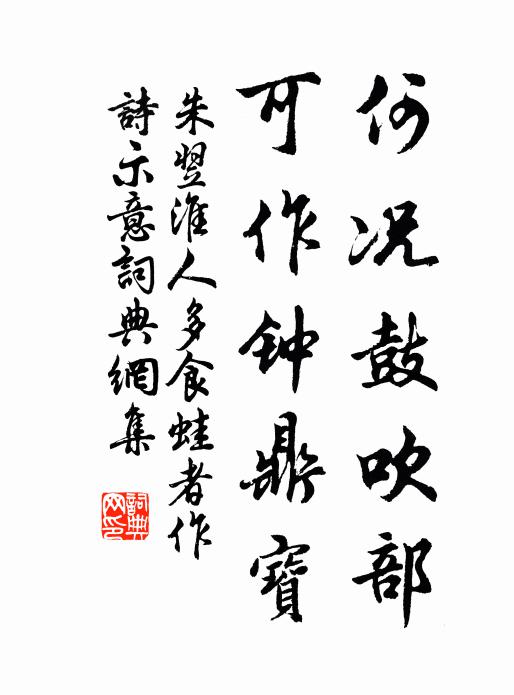 何况鼓吹部
可作钟鼎寶
朱翌淮人多食蛙者作
詩示意詞典網集
詞典網印